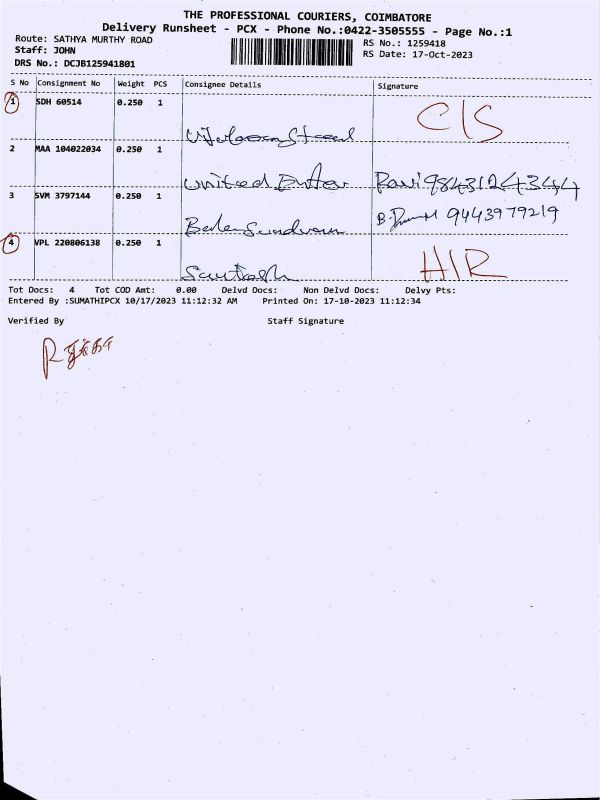 THE PROFESSIONAL COURIERS, COIMBATORE
Delivery Runsheet - PCX - Phone No.:0422-3505555 - Page No.:1
Route: SATHYA MURTHY ROAD
RS No.: 1259418
Staff: JOHN
RS Date: 17-Oct-2023
DRS No.: DCJB125941801
S No Consignment No Weight PCS Consignee Details Signature
1 SDH 60514 0.250 1 C/S
2 MAA 104022034 0.250 1
United Ravi 9843124344
3 SVM 3797144 0.250 1
9443979219
4 VPL 220806138 0.250 1
Santosh
Tot Docs: 4 Tot COD Amt: 0.00 Delvd Docs: Non Delvd Docs: Delvy Pts:
Entered By :SUMATHIPCX 10/17/2023 11:12:32 AM Printed On: 17-10-2023 11:12:34
Verified By Staff Signature